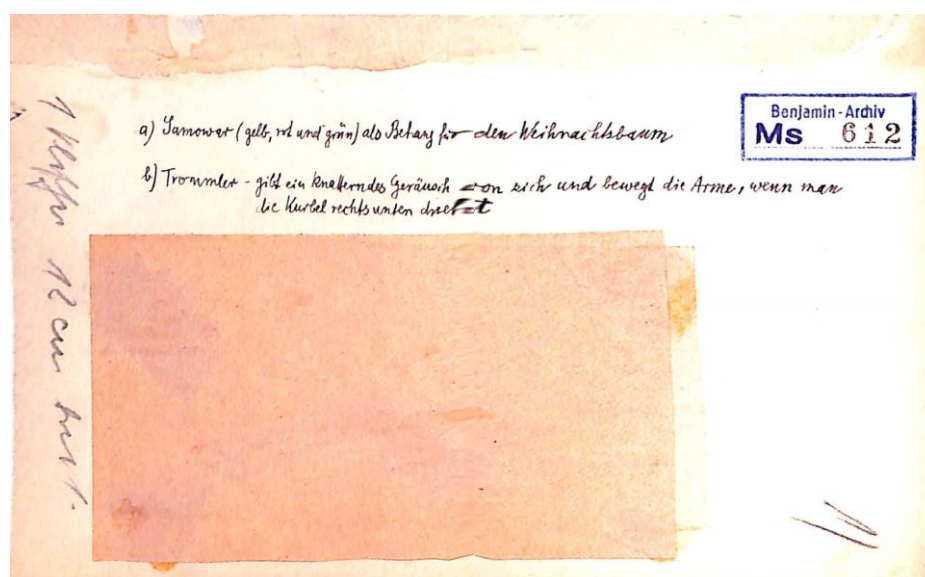 Benjamin-Archiv
Ms 612
a) Samowar (gelb, rot und grün) als Behang für den Weihnachtsbaum
b) Trommler - gibt ein knatterndes Geräusch von sich und bewegt die Arme, wenn man
die Kurbel rechts unten dreht
1 12 cm breit.